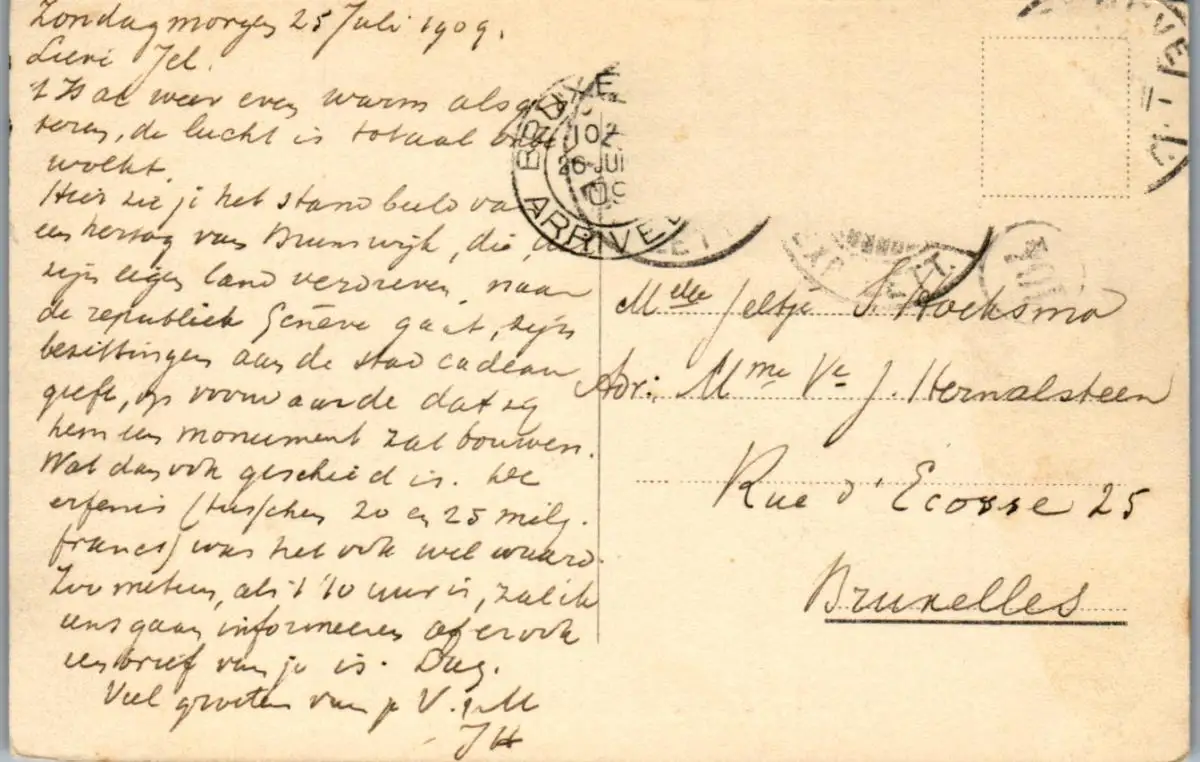 Zondagmorgen 25 Juli 1909.
Lieve Jel.
't Is al weer even warm als gis
teren, de lucht is totaal onbe
wolkt.
Hier zie je het standbeeld van
een hertog van Brunswijk, die, uit
zijn eigen land verdreven, naar
de republiek Genève gaat, zijn
bezittingen aan de stad cadeau
geeft, op voorwaarde dat zij
hem een monument zal bouwen.
Wat dan ook geschied is. De
erfenis (tusschen 20 en 25 milj.
francs) was het ook wel waard.
Zoo meteen, als 't 10 uur is, zal ik
eens gaan informeeren of er ook
een brief van je is. Dag.
Veel groeten van je V. & M
JH
BRUXEL
102
26-JUI
09
ARRIVEE
Melle Jeltje S. Hoeksma
Adr: Mme Ve J. Hernalsteen
Rue d'Ecosse 25
Bruxelles